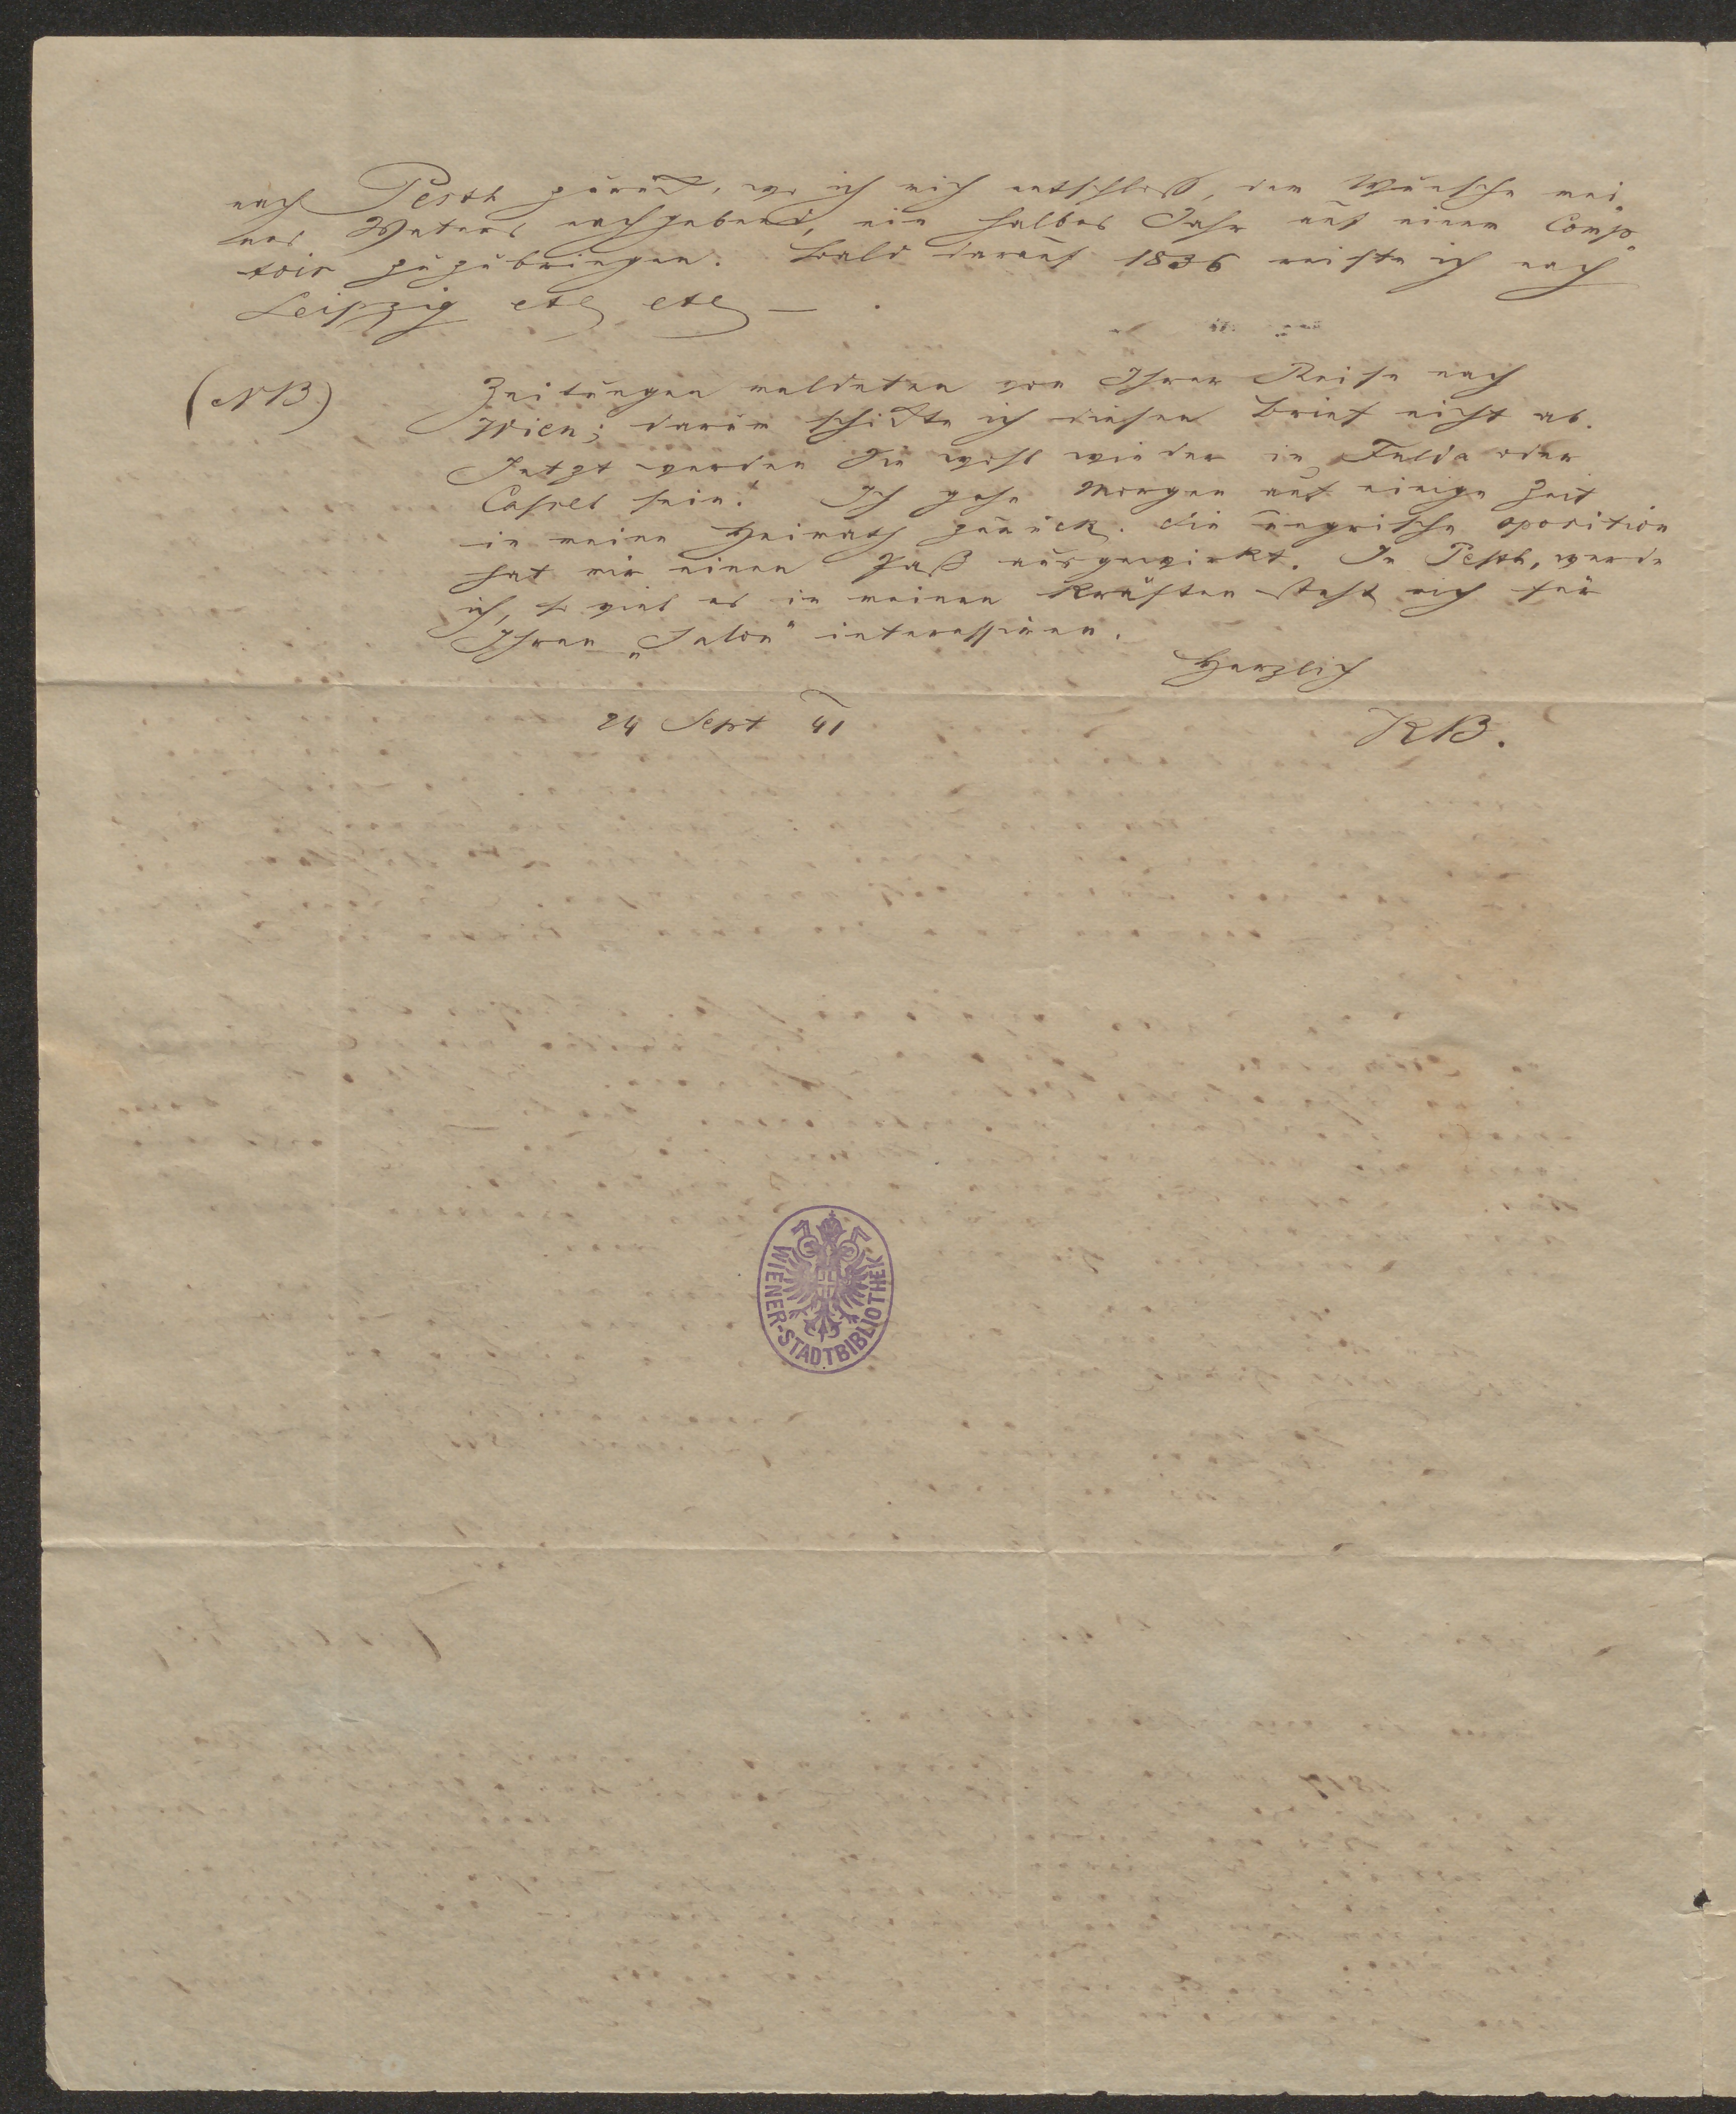 nach Pesth zurück, wo ich mich entschloß, dem Wunsche mei
nes Vaters nachgebend, ein halbes Jahr auf einem Comp
toir zuzubringen. Bald darauf 1836 reiste ich nach
Leipzig etc etc —.
(NB) Zeitungen meldeten von Ihrer Reise nach
Wien; darum schickte ich diesen Brief nicht ab.
Jetzt werden Sie wohl wieder in Fulda oder
Cassel sein. Ich gehe Morgen auf einige Zeit
in meine Heimath zurück. Die ungrische oposition
hat mir einen Paß ausgewirkt. In Pesth, werde
ich, so viel es in meinen Kräften steht mich für
Ihren „Salon“ interessiren.
Herzlich
24 Sept 41 KB.
WIENER-STADTBIBLIOTHEK